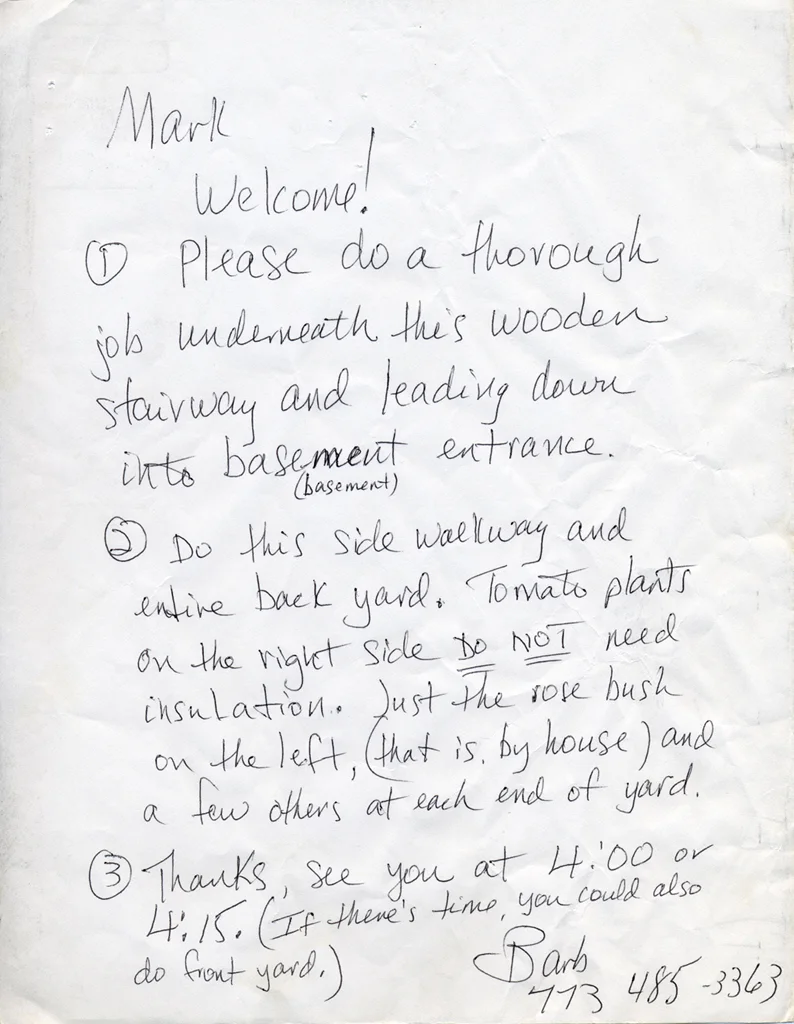 Mark
Welcome!
① Please do a thorough
job underneath this wooden
stairway and leading down
into basement entrance.
(basement)
② Do this side walkway and
entire back yard. Tomato plants
on the right side DO NOT need
insulation. Just the rose bush
on the left, (that is, by house) and
a few others at each end of yard.
③ Thanks, see you at 4:00 or
4:15. (If there's time, you could also
do front yard.)
Barb
773 485-3363